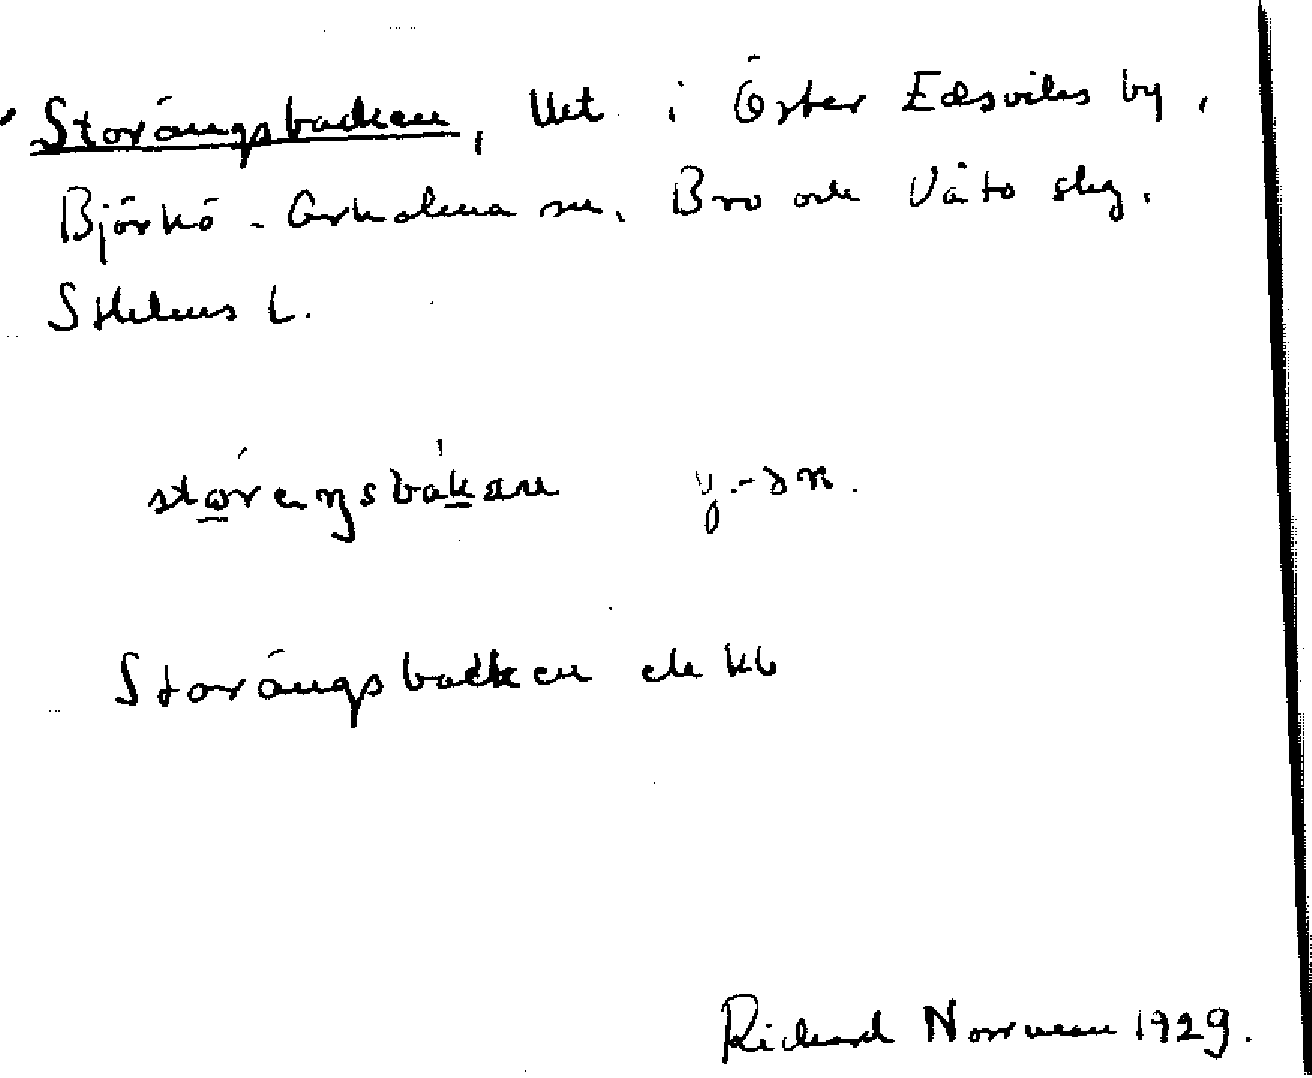 Storängsbacken, lht i Öster Edsviks by,
Björkö-Arholma sn, Bro och Vätö skg.
Sthlms l.
stórengsbàkan y.-ən.
Storängsbacken ek kb
Richard Norrman 1929.